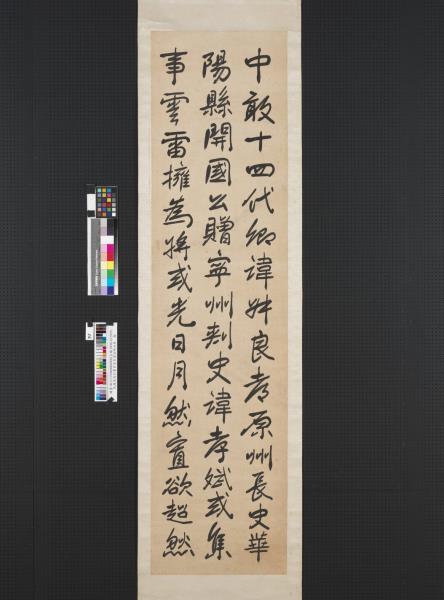 中敢十四代卿諱叔良考原州長史華
陽縣開國公贈寧州刺史諱孝斌或集
事雲雷擁為將或光日月然寡欲超然